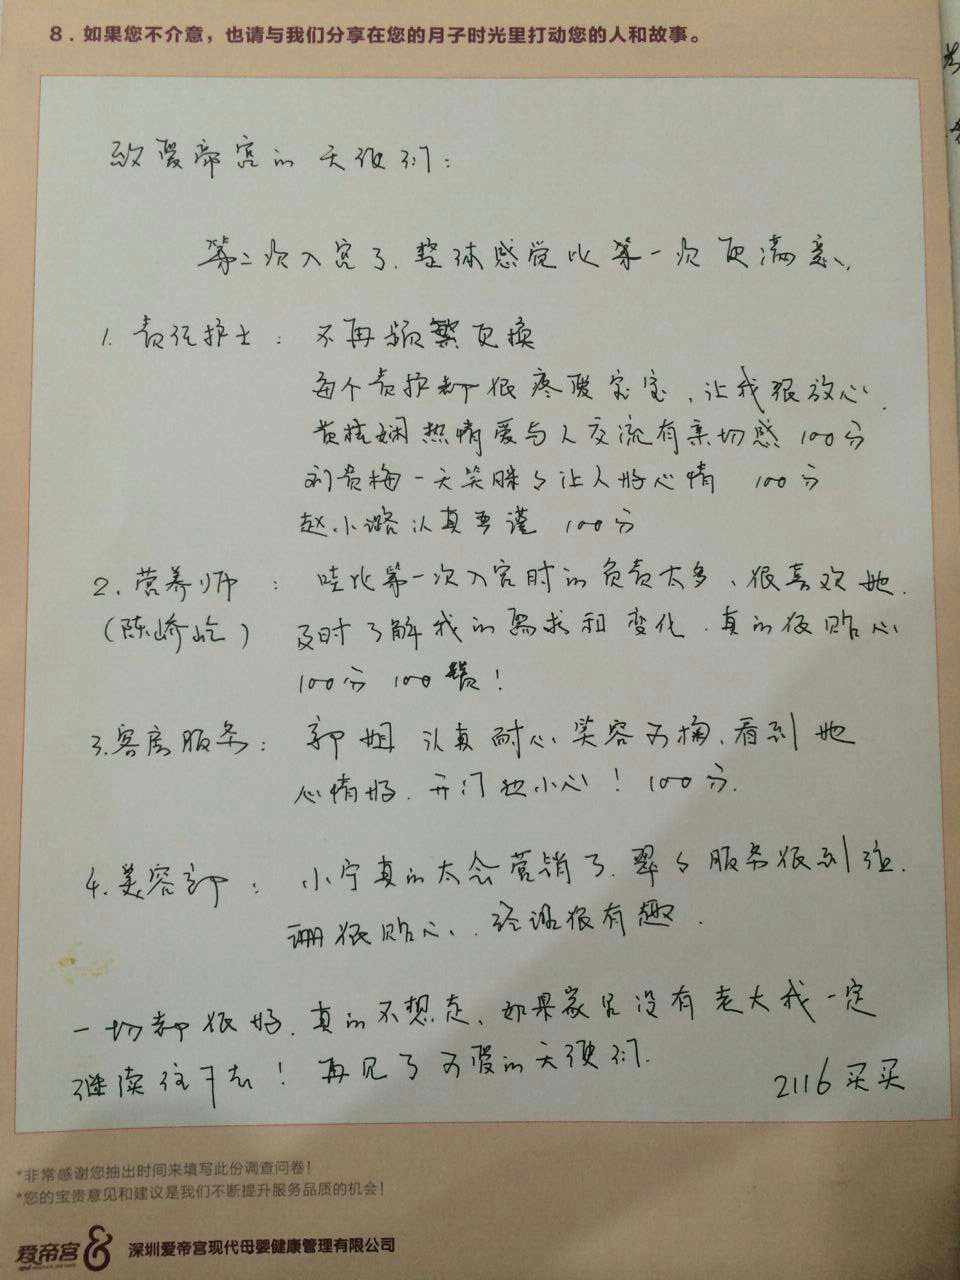 8．如果您不介意，也请与我们分享在您的月子时光里打动您的人和故事。
致爱帝宫的天使们：
第二次入宫了.整体感觉比第一次更满意、
1. 责任护士： 不再频繁更换
每个责护都很疼爱宝宝、让我很放心.
黄 娴热情爱与人交流有亲切感 100分
刘贵梅一天笑眯々让人好心情 100分
赵小璐认真严谨 100分
2、营养师： 哇比第一次入宫时的负责太多、很喜欢她.
(陈峤屹) 及时了解我的需求和变化.真的很贴心
100分 100 赞！
3.客房服务： 郭姐认真耐心、笑容可掬、看到她
心情好.开门也小心！100分.
4.美容部： 小宁真的太会营销了.翠々服务很到位.
珊很贴心、.经理很有趣.
一切都很好.真的不想走、如果家里没有老大我一定
继续住下去！再见了可爱的天使们.
2116买买
*非常感谢您抽出时间来填写此份调查问卷！
*您的宝贵意见和建议是我们不断提升服务品质的机会！
爱帝宫 深圳爱帝宫现代母婴健康管理有限公司